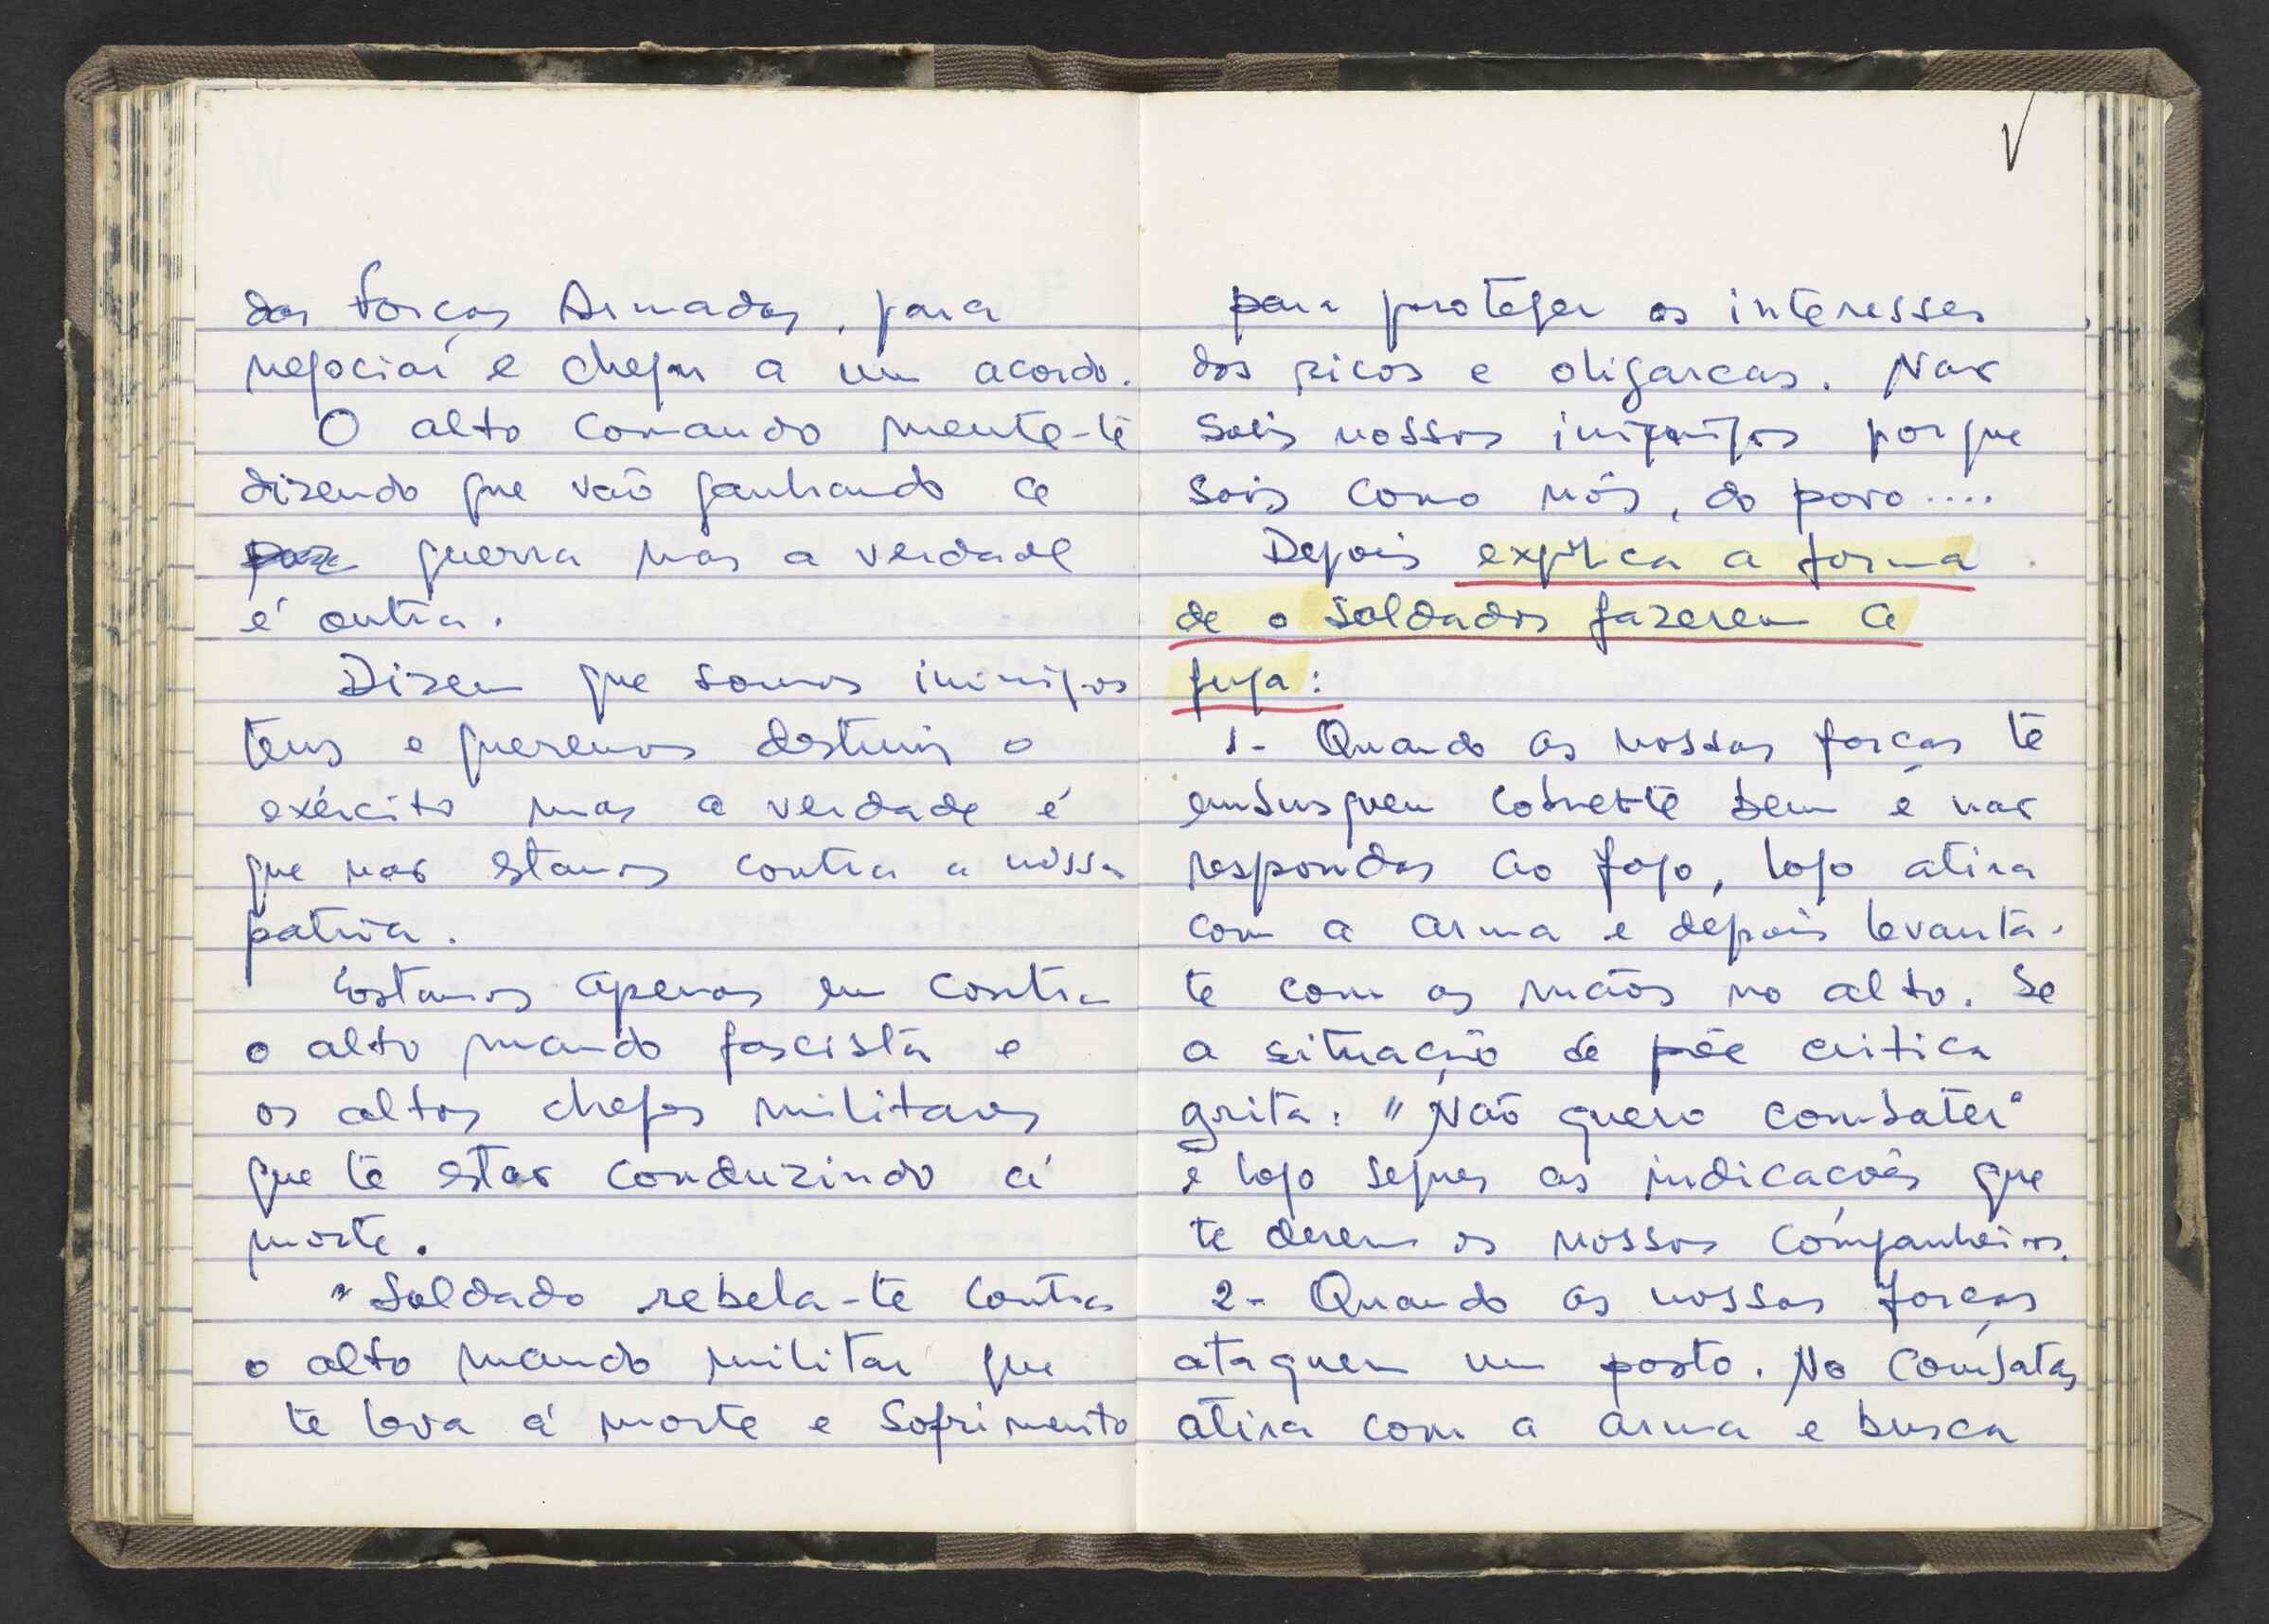 das forças Armadas, para
negociar e chegar a um acordo.
O alto comando mente-te
dizendo que vão ganhando a
guerra mas a verdade
é outra.
Dizem que somos inimigos
teus e queremos destruir o
exército mas a verdade é
que nao estamos contra a nossa
patria.
Estamos apenas em contra
o alto mando fascista e
os altos chefes militares
que te estao conduzindo á
morte.
"Soldado rebela-te contra
o alto mando militar que
te leva á morte e sofrimento
para proteger os interesses
dos ricos e oligarcas. Nao
sois nossos inimigos porque
sois como nós, do povo....
Depois explica a forma
de o soldados fazerem a
fuga:
1- Quando as nossas forças te
embusquem cobrete bem e nao
respondas ao fogo, logo atira
com a arma e depois levanta-
te com as mãos no alto. Se
a situação se põe critica
grita: "Não quero combater"
e logo segues as indicações que
te derem os nossos companheiros.
2- Quando as nossas forças
ataquem um posto. No combates
atira com a arma e busca